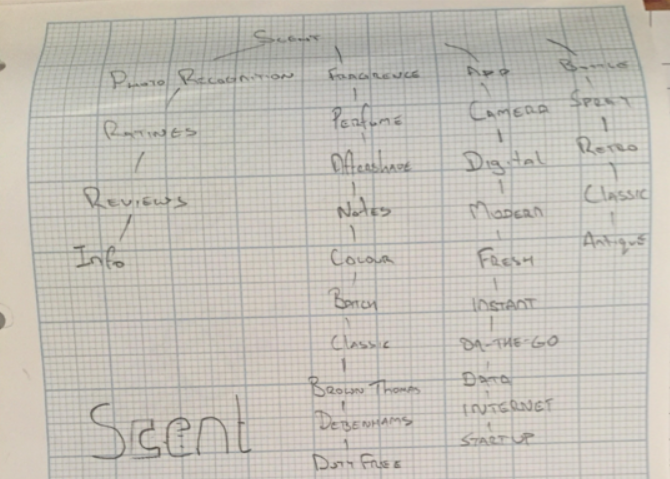 Scent
Photo Recognition
Ratings
Reviews
Info
Fragrence
Perfume
Aftershave
Notes
Colour
Classic
Brown Thomas
Debenhams
Duty Free
App
Camera
Digital
Modern
Fresh
Instant
On-The-Go
Data
Internet
Startup
Bottle
Spray
Retro
Classic
Antique
Scent